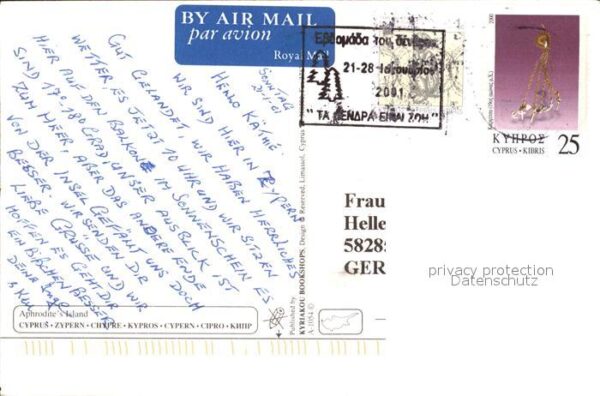 BY AIR MAIL
par avion
Royal Mail
Εβδομάδα του δένδρου
21-28 Ιανουαρίου
2001
"ΤΑ ΔΕΝΔΡΑ ΕΙΝΑΙ ΖΩΗ"
2000
ΚΥΠΡΟΣ
CYPRUS · KIBRIS
25
SONTAG
HELLO KÄTHE
WIR SIND HIER IN ZYPERN
GUT GELANDET. WIR HABEN HERRLICHES
WETTER, ES JETZT 10 UHR UND WIR SITZEN
HIER AUF DEN BALKON IM SONNENSCHEIN ES
SIND 17-18° GRAD UNSER AUSBLICK IST
ZUM MEER, ABER DAS ANDERE ENDE
VON DER INSEL GEFÄLLT UNS DOCH
BESSER. WIR SENDEN DIR
LIEBE GRÜSSE UND WIR
HOFFEN ES GEHT DIR
EIN BIRCHEN BESSER
DEINE
Frau
Helle
5828
GER
privacy protection
Datenschutz
Published by
KYRIAKOU BOOKSHOPS, Design ® Reserved, Limassol, Cyprus
A-1054 ©
Aphrodite's Island
CYPRUS · ZYPERN · CHYPRE · KYPROS · CYPERN · CIPRO · КИПР